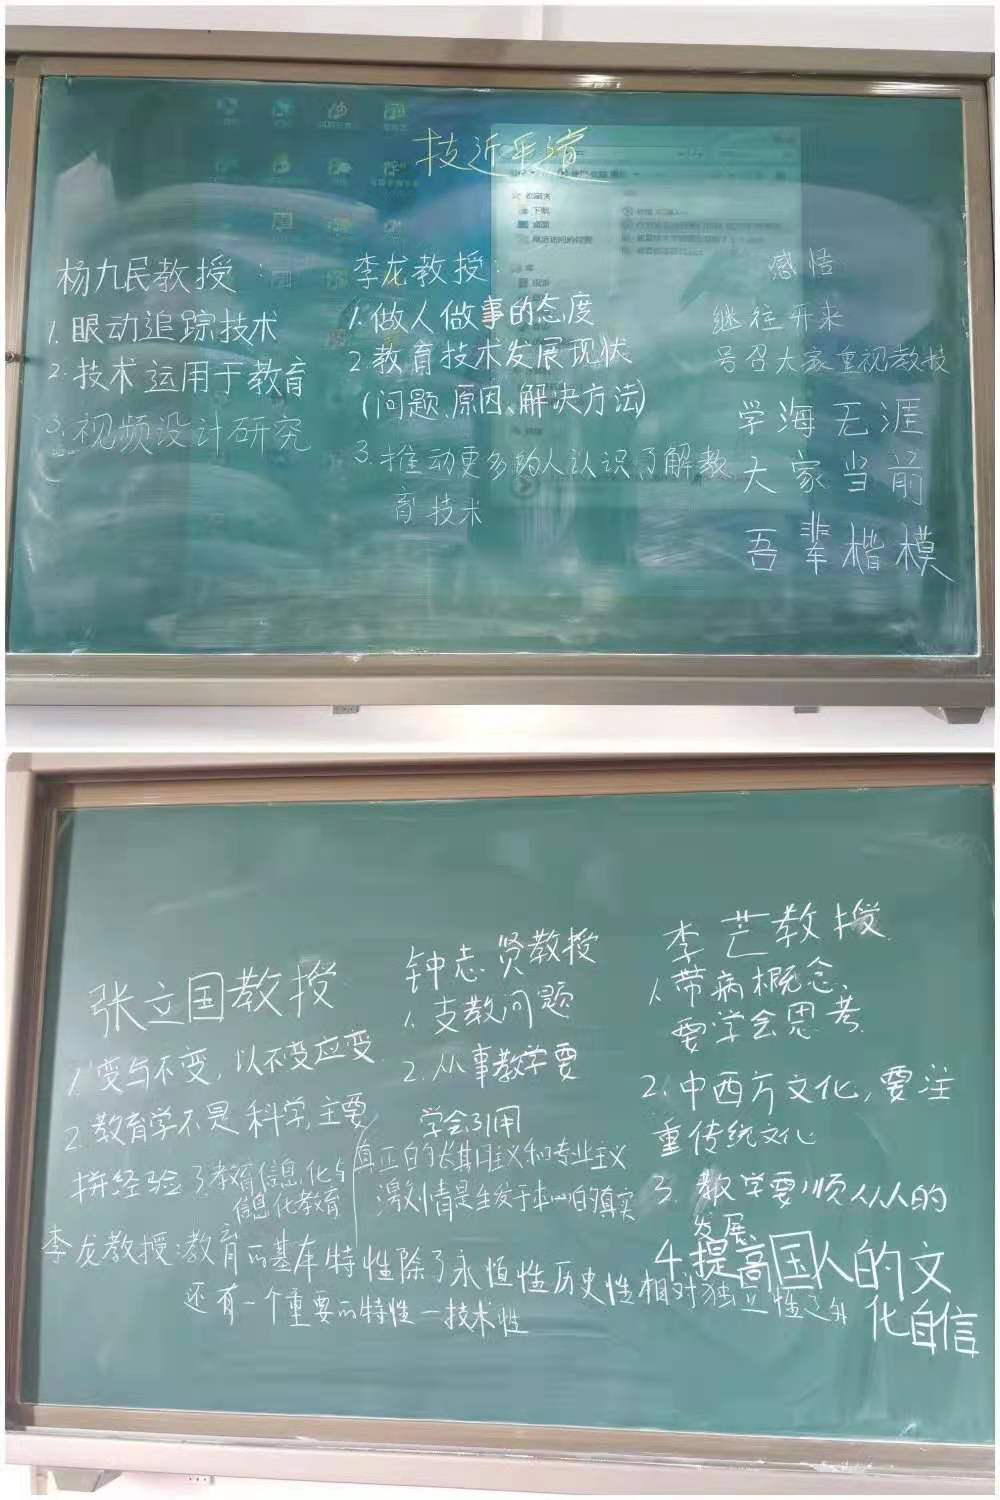 技近乎道
杨九民教授:
1.眼动追踪技术
2.技术运用于教育
3.视频设计研究
李龙教授:
1.做人做事的态度
2.教育技术发展现状
(问题、原因、解决方法)
3.推动更多的人认识了解教
育技术
感悟
继往开来
号召大家重视教技
学海无涯
大家当前
吾辈楷模
张立国教授
1.变与不变,以不变应变
2.教育学不是科学,主要
拼经验
3.教育信息化与
信息化教育
钟志贤教授
1.支教问题
2.从事教学要
学会引用
真正的长期主义和专业主义
激情是生发于本心的真实
李芒教授
1.带病概念,
要学会思考
2.中西方文化,要注
重传统文化
3.教学要顺从人的
发展
4.提高国人的文
化自信
李龙教授:教育的基本特性除了永恒性历史性相对独立性之外
还有一个重要的特性—技术性